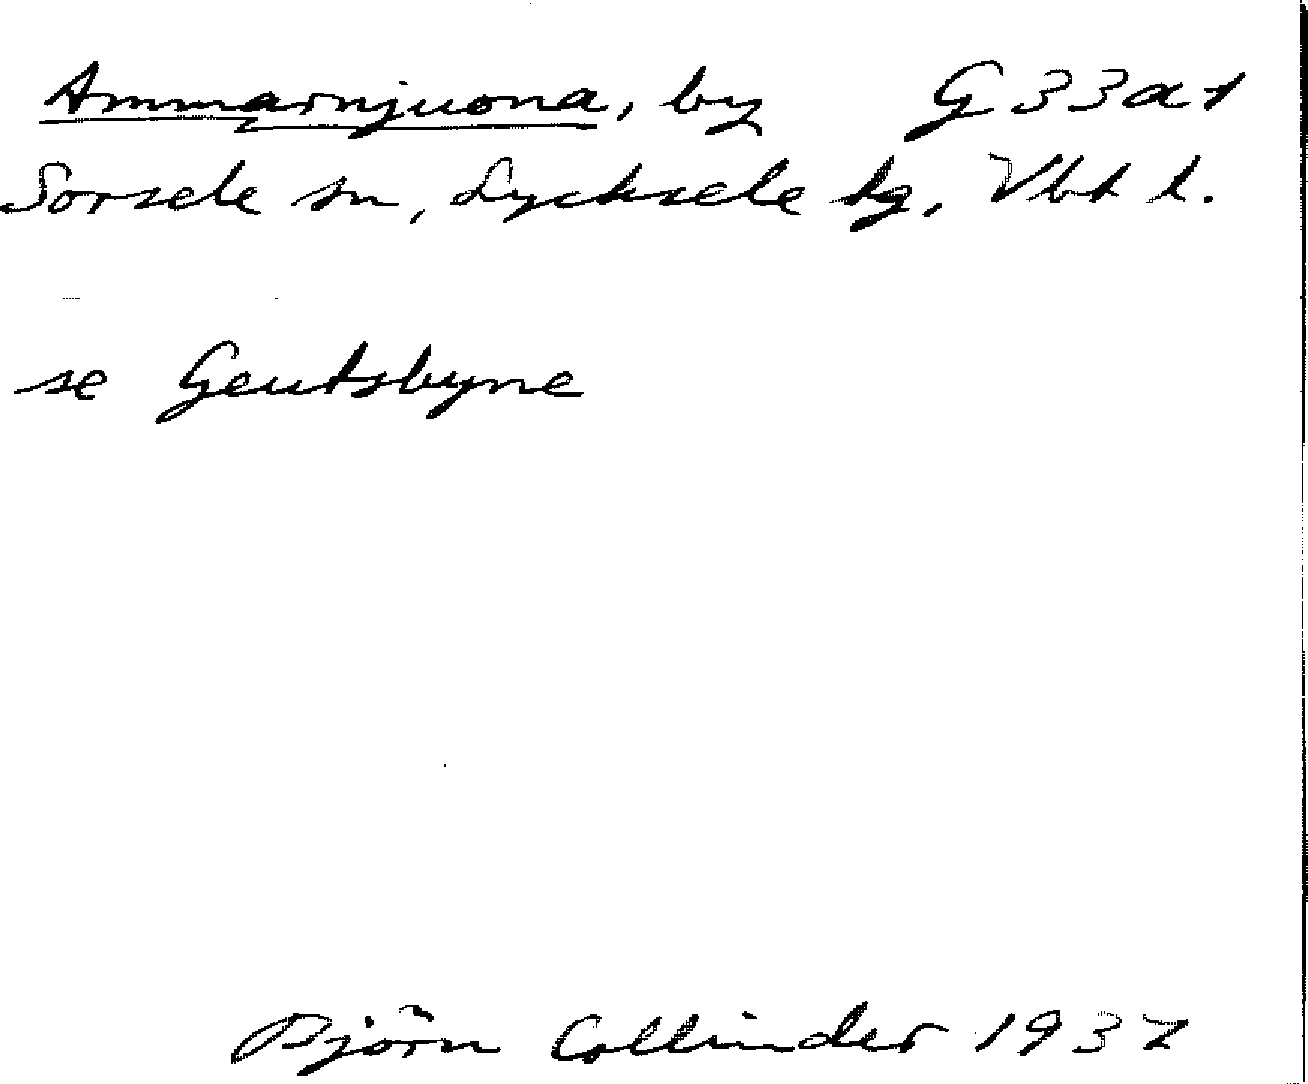 Ammarnjuona, by G 33 a 1
Sorsele sn, Lycksele lg, Vbt l.
se Geutsbyne
Björn Collinder 1937